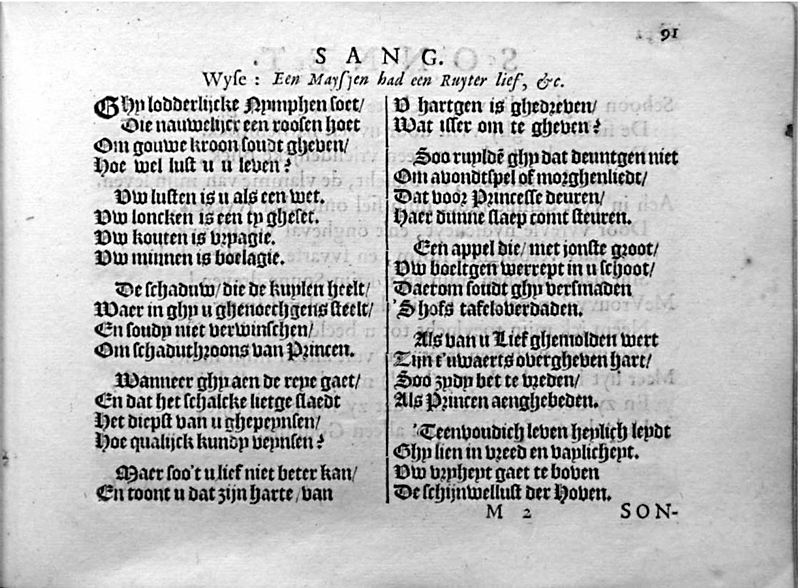 91
SANG.
Wyse: Een Maysjen had een Ruyter lief, &c.
Ghy lodderlijcke Nymphen soet/
Die nauwelijcx een roosen hoet
Om gouwe kroon soudt gheven/
Hoe wel lust u u leven?
Uw lusten is u als een wet.
Uw loncken is een ty gheset.
Uw kouten is vrpagie.
Uw minnen is boelagie.
De schaduw/ die de kuylen heelt/
Waer in ghy u ghenoechgens steelt/
En soudy niet verwinschen/
Om schaduthroons van Princen.
Wanneer ghy aen de reye gaet/
En dat het schalcke lietge slaedt
Het diepst van u ghepeynsen/
Hoe qualijck kundy veynsen?
Maer soo't u lief niet beter kan/
En toont u dat zijn harte/ van
U hartgen is ghedreven/
Wat isser om te gheven?
Soo ruyldē ghy dat deuntgen niet
Om avondtspel of morghenliedt/
Dat voor Princesse deuren/
Haer dunne slaep comt steuren.
Een appel die/ met jonste groot/
Uw boeltgen werrept in u schoot/
Daerom soudt ghy versmaden
'S hofs tafeloverdaden.
Als van u Lief ghemolden wert
Tijn t'uwaerts overgheven hart/
Soo zydy bet te vreden/
Als Princen aenghebeden.
'Teenvoudich leven heylich leydt
Ghy lien in vreed en vaylicheyt.
Uw vryheyt gaet te boven
De schijnwellust der Hoven.
M 2
SON-